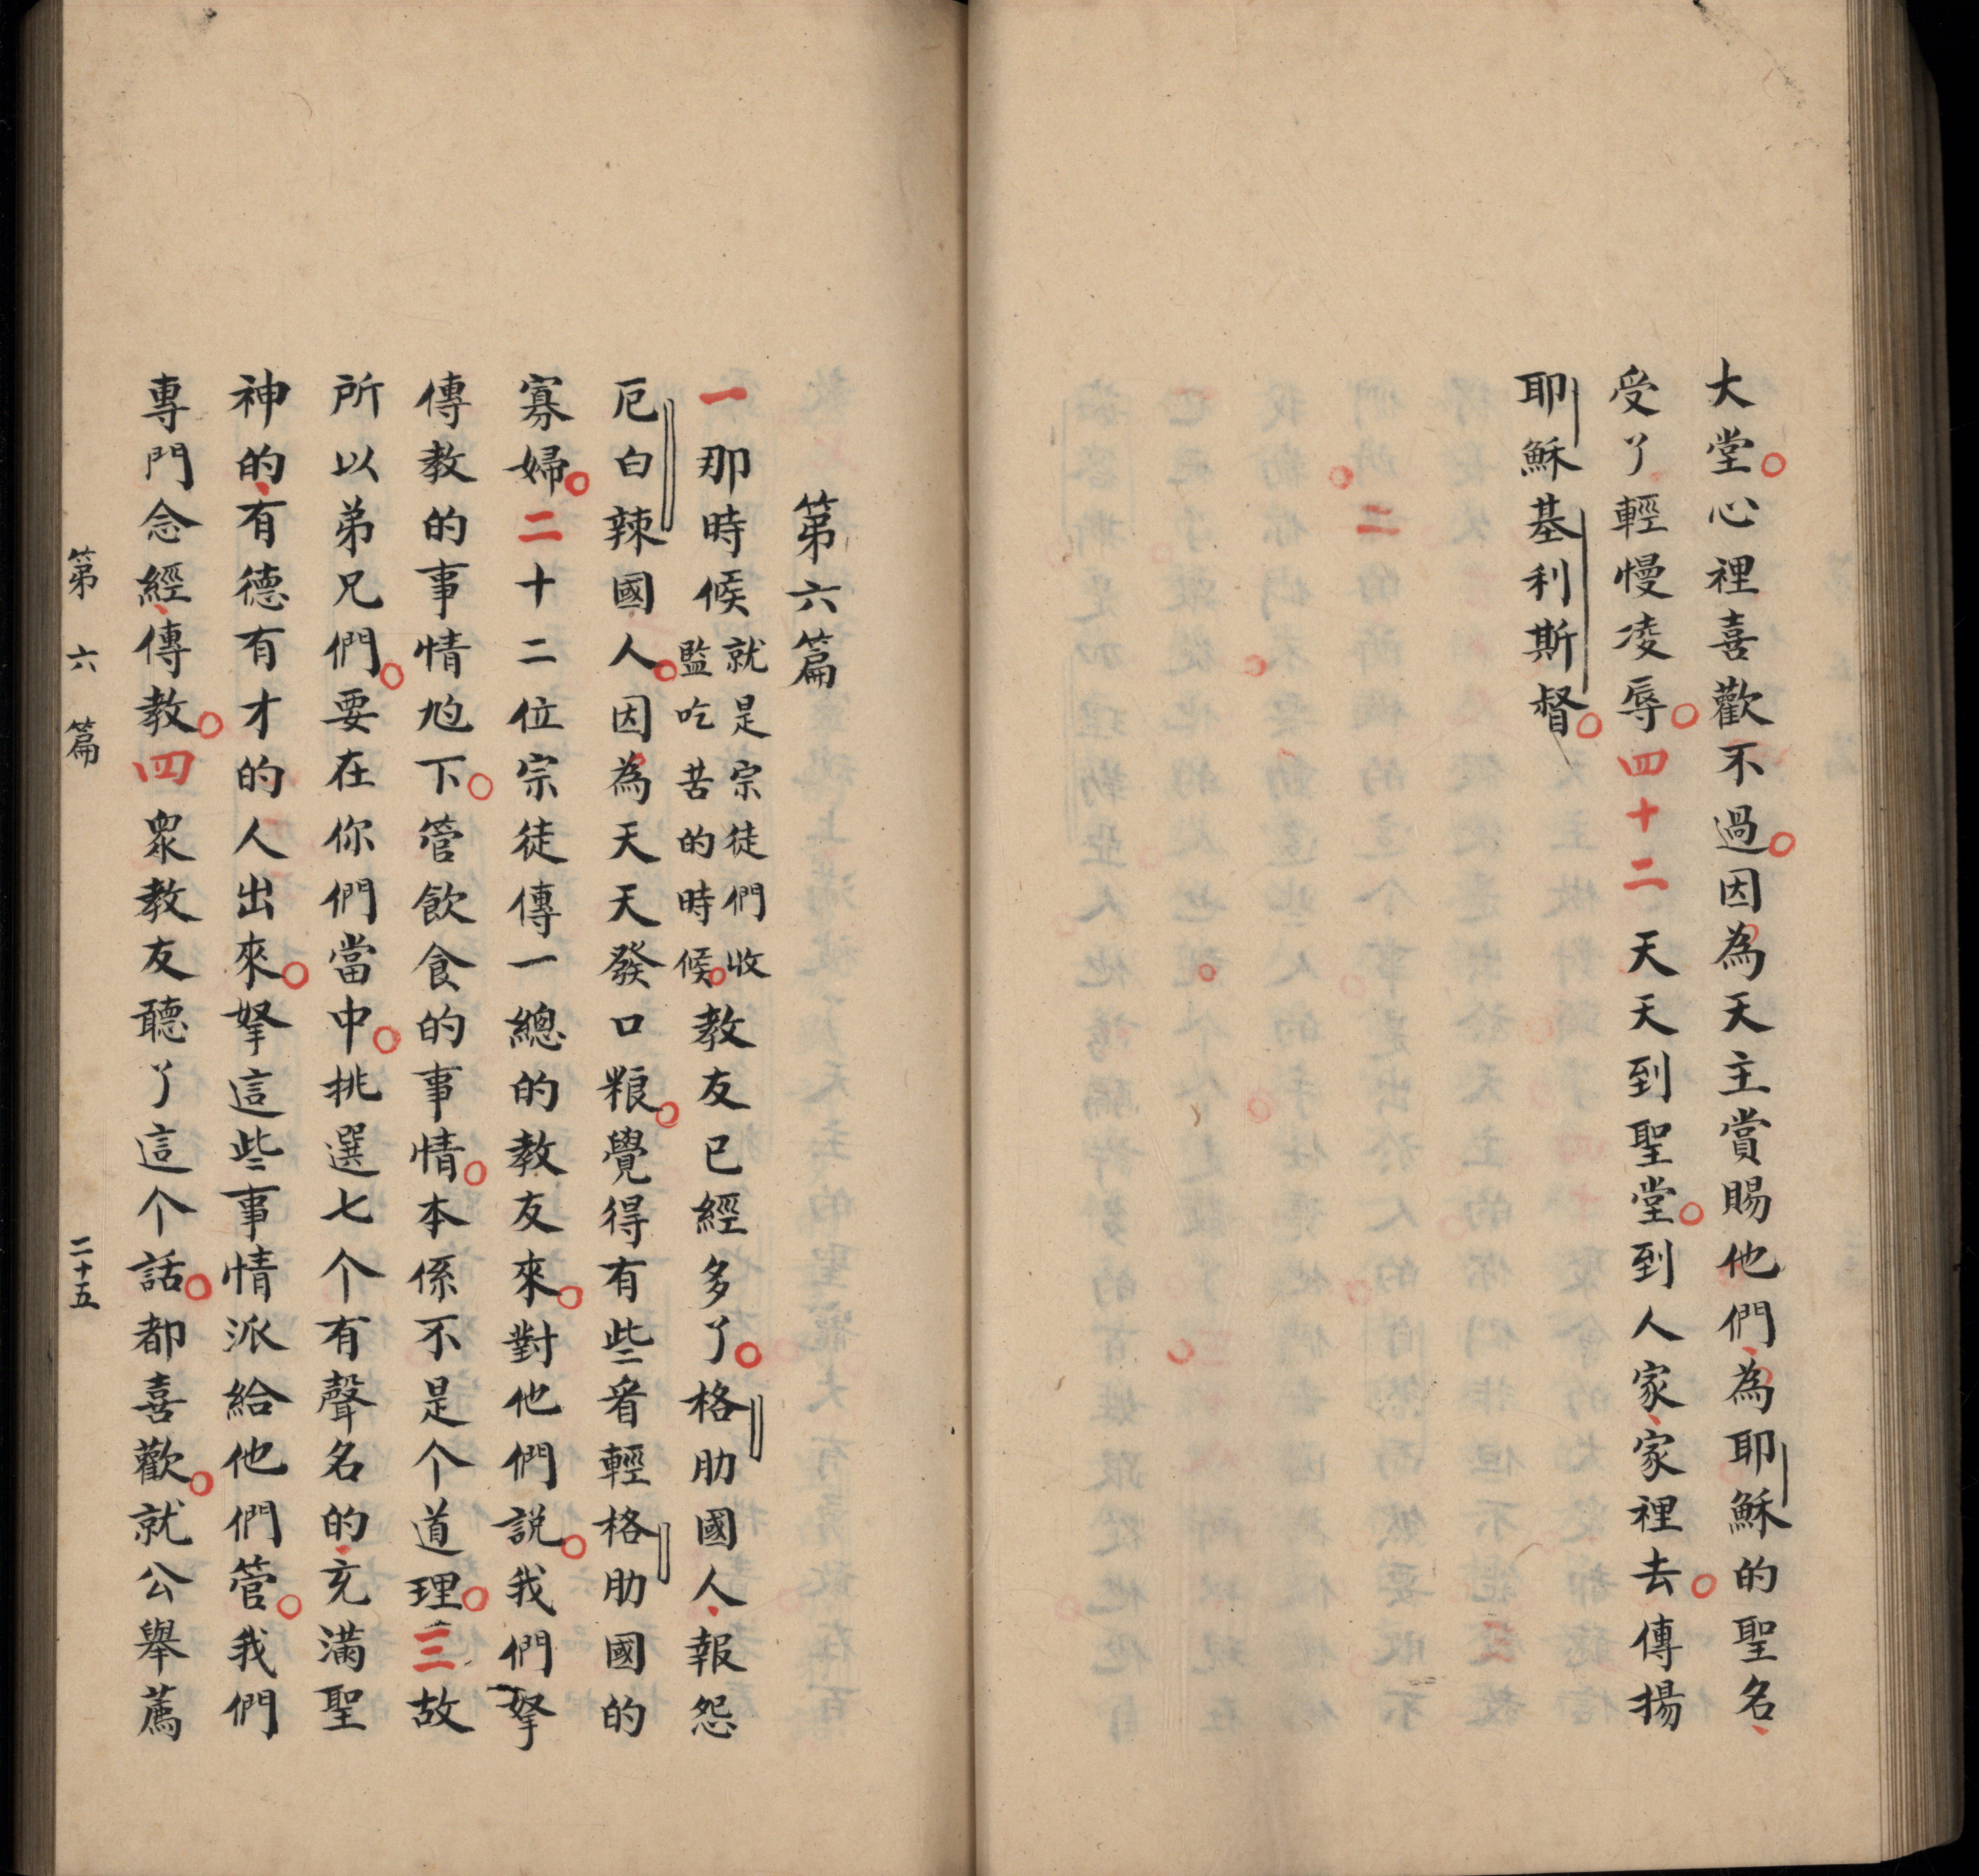 大堂。心裡喜歡不過。因為天主賞賜他們、為耶穌的聖名、
受了輕慢凌辱。四十二天天到聖堂。到人家、家裡去。傳揚
耶穌基利斯督。
第六篇
一那時候就是宗徒們收
監吃苦的時候。教友已經多了。格肋國人、報怨
厄白辣國人。因為天天發口粮。覺得有些看輕格肋國的
寡婦。二十二位宗徒傳一總的教友來。對他們説。我們拏
傳教的事情尥下。管飲食的事情。本係不是个道理。三故
所以弟兄們。要在你們當中。挑選七个有聲名的、充滿聖
神的、有德有才的人出來。拏這些事情派給他們管。我們
專門念經、傳教。四眾教友聽了這个話。都喜歡。就公舉薦
第六篇 二十五